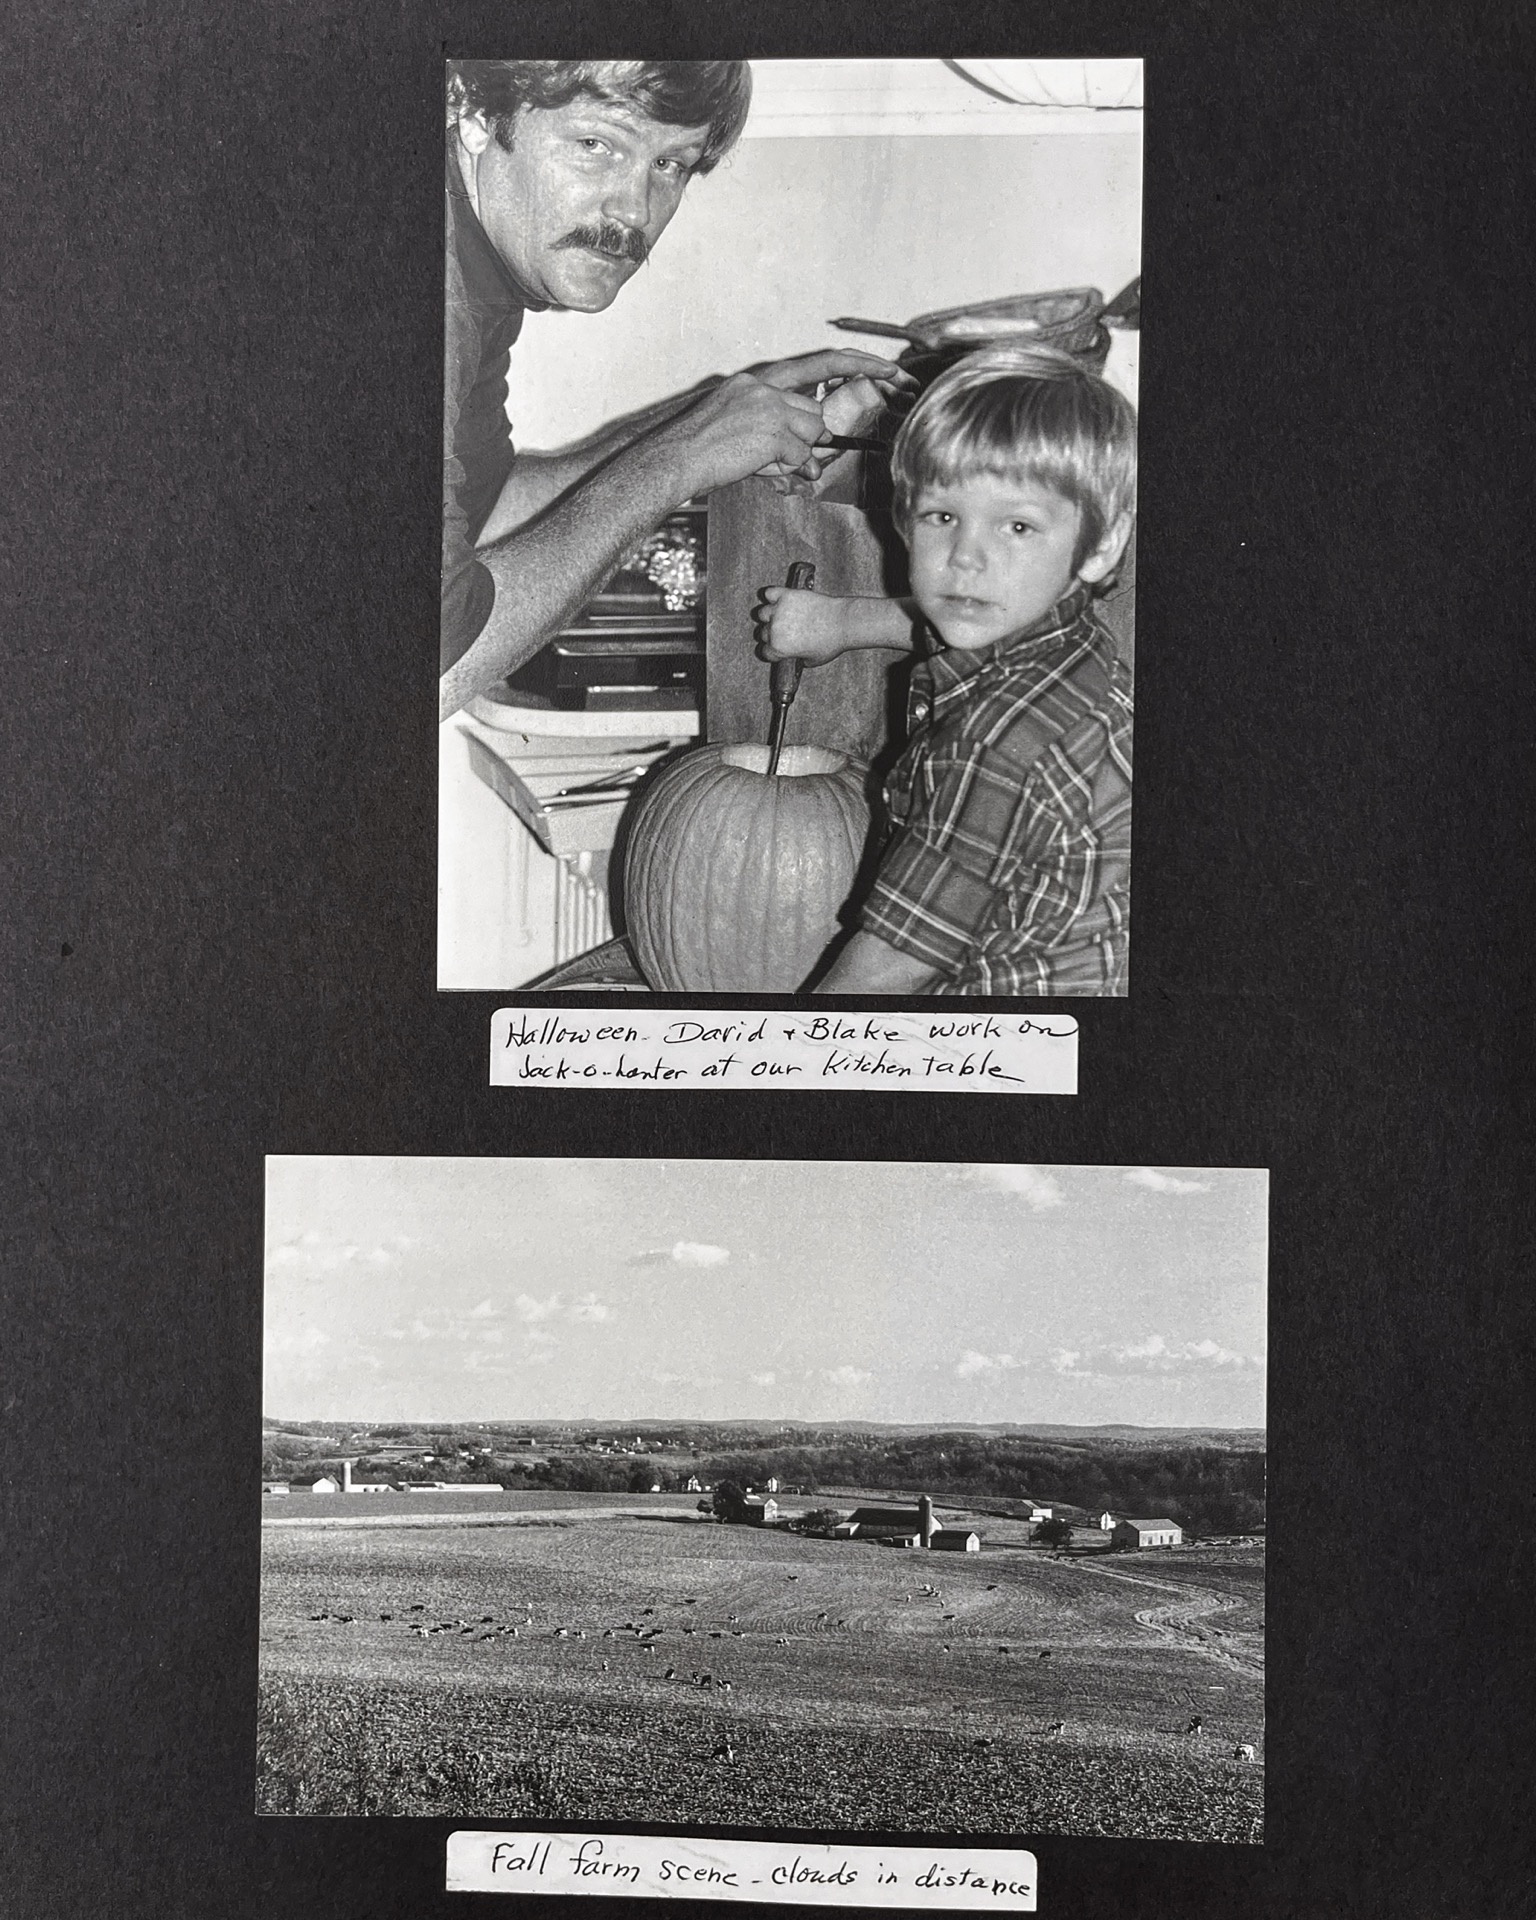 Halloween - David + Blake work on
Jack-o-lanter at our kitchen table
Fall farm scene - clouds in distance